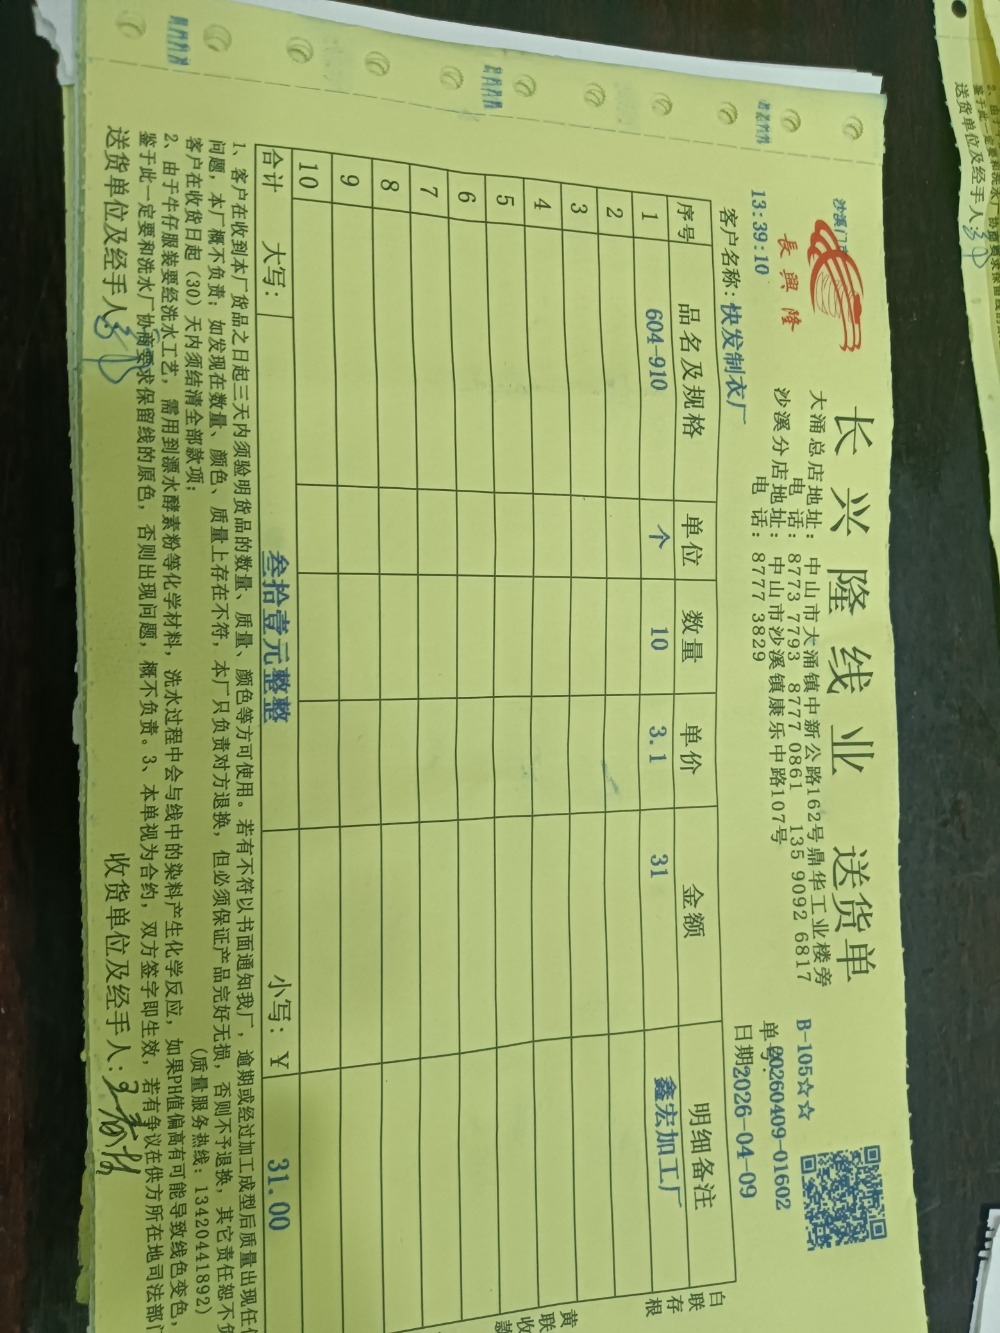 长兴隆线业 送货单
沙溪门
長興隆
大涌总店地址: 中山市大涌镇中新公路162号鼎华工业楼旁
电 话: 8773 7793 8777 0861 135 9092 6817
沙溪分店地址: 中山市沙溪镇康乐中路107号
电 话: 8777 3829
B-105☆☆
单号: 20260409-01602
日期2026-04-09
13:39:10
客户名称: 快发制衣厂
序号 品名及规格 单位 数量 单价 金额 明细备注
1 604-910 个 10 3.1 31 鑫宏加工厂
2
3
4
5
6
7
8
9
10
合计 大写: 叁拾壹元整整 小写: ¥ 31.00
1、客户在收到本厂货品之日起三天内须验明货品的数量、质量、颜色等方可使用。若有不符以书面通知我厂, 逾期或经过加工成型后质量出现任何
问题, 本厂概不负责; 如发现在数量、颜色、质量上存在不符, 本厂只负责对方退换, 但必须保证产品完好无损, 否则不予退换, 其它责任恕不负
客户在收货日起 (30) 天内须结清全部款项; (质量服务热线: 13420441892)
2、由于牛仔服装要经洗水工艺, 需用到漂水酵素粉等化学材料, 洗水过程中会与线中的染料产生化学反应, 如果PH值偏高有可能导致线色变色,
鉴于此一定要和洗水厂协商要求保留线的原色, 否则出现问题, 概不负责。3、本单视为合约, 双方签字即生效, 若有争议在供方所在地司法部门
送货单位及经手人: 收货单位及经手人:
白联存根
黄联收款
送货单位及经手人: